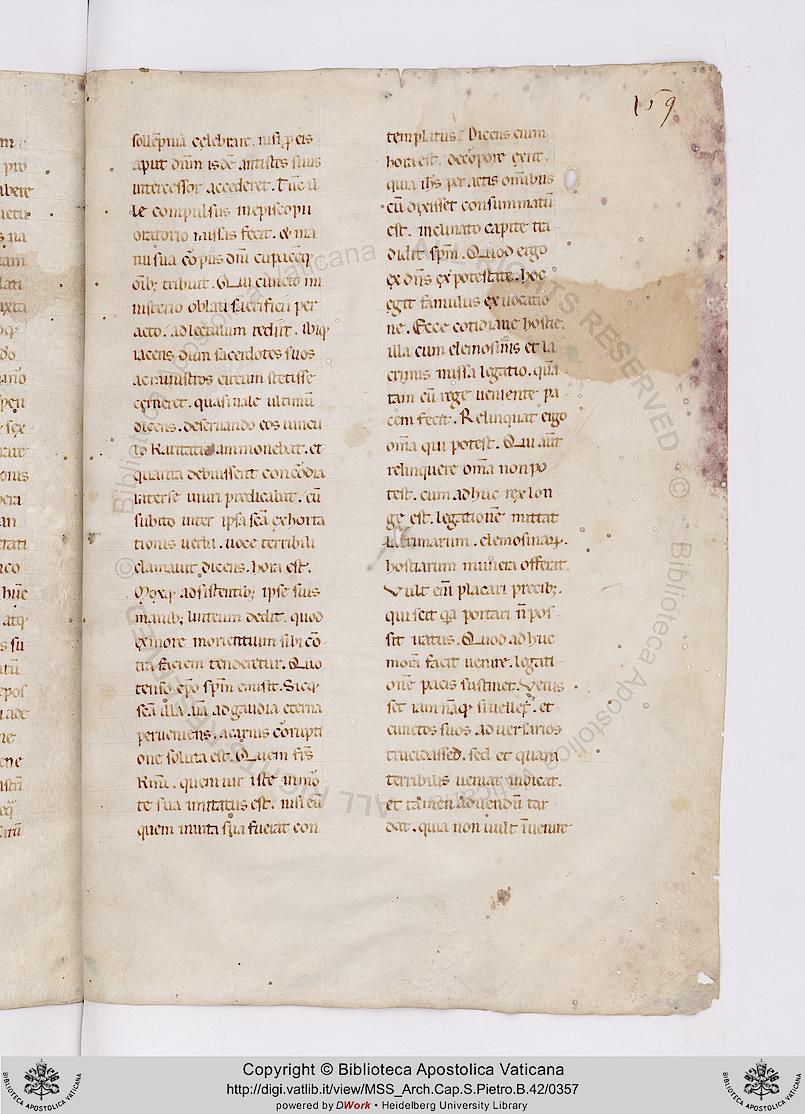 159
sollẽpnia celebrare. nisi ꝓ eis
aput dnm̃ isdẽ antistes suus
intercessor accederet. Tũc il
le compulsus in episcopii
oratorio missas fecit. & ma
nu sua cõpus dnĩ et pacẽq;
om̃ib; tribuit. Qui cuncto mi
nisterio oblati sacrificii per
acto. ad lectulum rediit. ibiq;
iacens dum sacerdotes suos
ac ministros circum stetisse
cerneret. quasi vale ultimũ
dicens. de servando eos vincu
lo karitatis ammonebat. et
quanta debuissent concordia
inter se uniri predicabat. cũ
subito inter ipsa scã exhorta
tionis verba. voce terribili
clamavit dicens. hora est.
Moxq; adsistentib; ipse suis
manib; linteum dedit. quod
ex more morientium sibi cõ
tra faciem tenderetur. Quo
tenso ep̃o spm̃ emisit. Sicq;
scã illa aĩa ad gaudia eterna
perveniens. a carnis corrupti
one soluta est. Quem frs̃
Kmi. quem vir iste in mor
te sua imitatus est. nisi eũ
quem in vita sua fuerat con
templatus. Dicens enim
hora est. de corpore exiit.
quia ihs̃ per actis omnibus
cũ dixisset consummatũ
est. inclinato capite tra
didit spm̃. Quod ergo
ex dns̃ ex potestate. hoc
egit famulus ex vocatio
ne. Ecce cotidiane hostie.
illa cum elemosinis et la
crimis missa legatio. quã
tam cũ rege veniente pa
cem fecit. Relinquat ergo
om̃a qui potest. Qui aũt
relinquere om̃a non po
test. cum adhuc rex lon
ge est. legationẽ mittat
lacrimarum. elemosinarꝝ.
hostiarum munera offerat.
Vult eni͂ placari precib;.
qui scit qa portari ñ pos
sit iratus. Quod adhuc
morã facit venire. legati
onẽ pacis sustinet. Venis
set iam nãq; si vellet. et
cunctos suos adversarios
trucidassed. sed et quam
terribilis veniat indicat.
et tamen ad vendũ tar
dat. quia non vult ĩvenire
Copyright © Biblioteca Apostolica Vaticana
http://digi.vatlib.it/view/MSS_Arch.Cap.S.Pietro.B.42/0357
powered by DWork • Heidelberg University Library
BIBLIOTECA APOSTOLICA VATICANA
BIBLIOTECA APOSTOLICA VATICANA